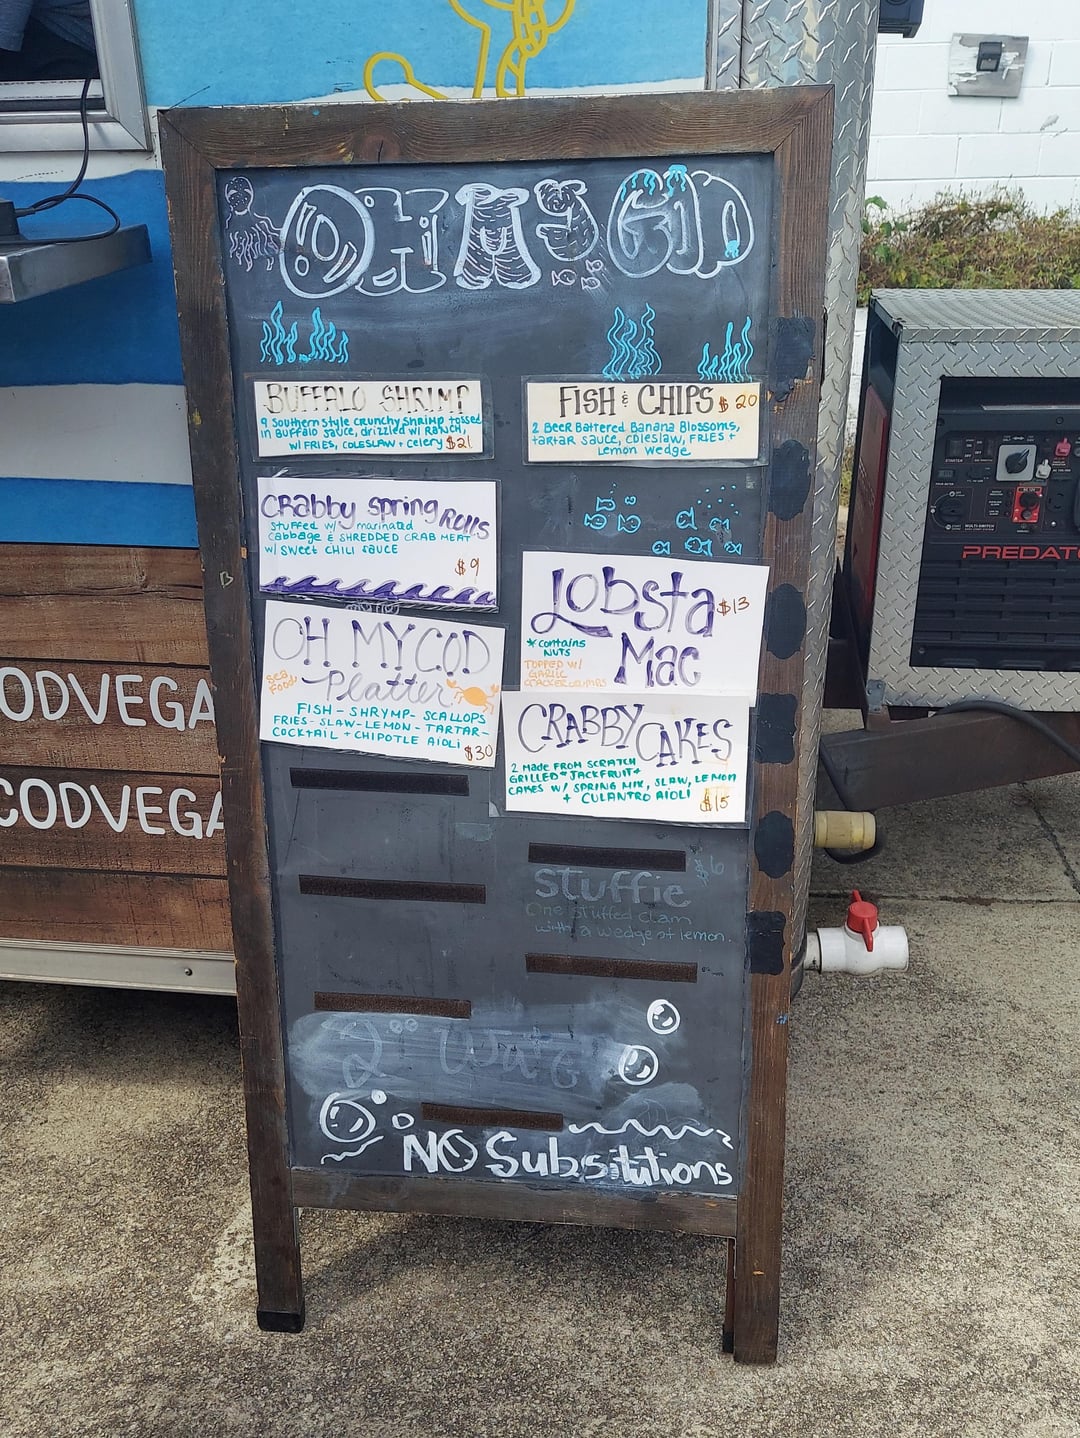 OH MY COD
BUFFALO SHRIMP
9 Southern style crunchy SHRIMP tossed
in Buffalo sauce, drizzled w/ RANCH,
w/ FRIES, COLESLAW + celery $21
FISH & CHIPS $20
2 Beer Battered Banana Blossoms,
tartar sauce, coleslaw, FRIES +
Lemon wedge
CRabby Spring Rolls
STUFFED w/ marinated
Cabbage & SHREDDED CRAB MEAT
w/ SWEET CHILI SAUCE
$9
Lobsta $13
Mac
*contains
NUTS
TOPPED w/
GARLIC
CRACKERCRUMBS
OH MY COD
Sea
Food
Platter
FISH - SHRYMP - SCALLOPS
FRIES - SLAW - LEMON - TARTAR -
COCKTAIL + CHIPOTLE AIOLI
$30
CRABBY CAKES
2 Made FROM SCRATCH
GRILLED * JACKFRUIT *
CAKES w/ SPRING MIX, SLAW, LEMON
+ CULANTRO AIOLI
$15
$6
Stuffie
One stuffed clam
with a wedge of lemon.
NO Substitutions
ODVEGA
CODVEGA
PREDATO